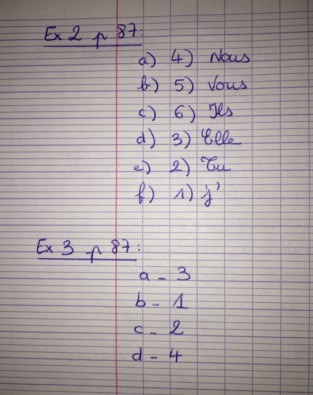 Ex 2 p 87:
a) 4) Nous
b) 5) Vous
c) 6) Ils
d) 3) Elle
e) 2) Tu
f) 1) j'
Ex 3 p 87:
a - 3
b - 1
c - 2
d - 4